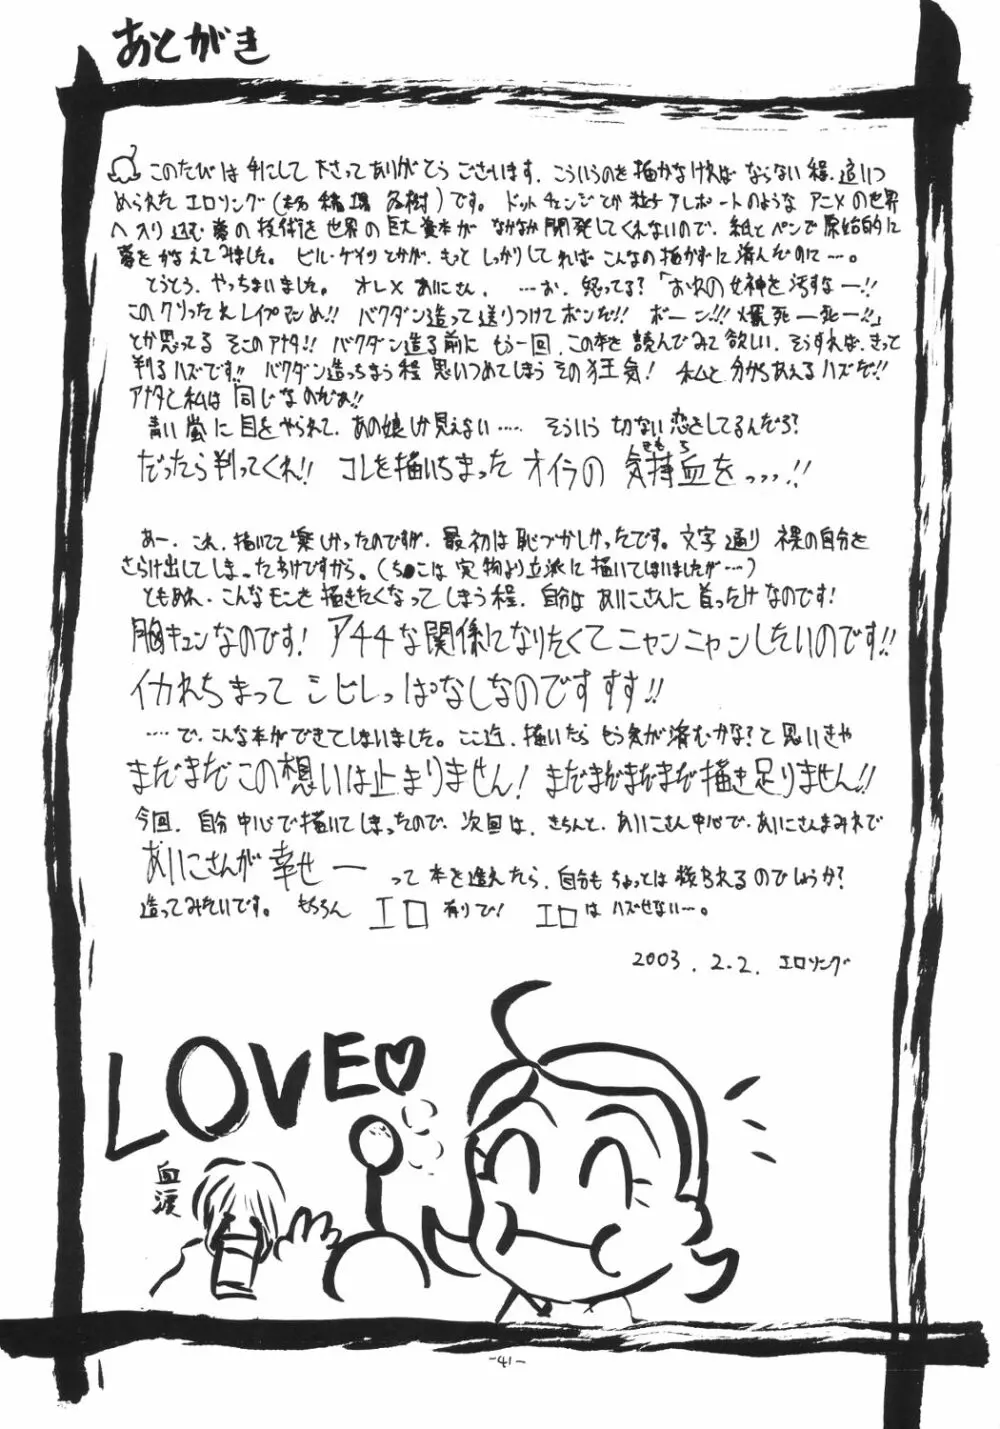 あとがき
このたびは手にして下さってありがとうございます。こういうのを描かなければならない程、追いつ
められたエロリング()です。ドットチェンジとか粒子アレポートのようなアニメの世界
へ入り込む夢の技術を世界の巨大資本がなかなか開発してくれないので、紙とペンで原始的に
夢をかなえてみました。ビル・ゲイツとかが、もっとしっかりしてればこんなの描かずに済んだのに…。
とうとう、やっちまいました。オレ×あにさん。…お、怒ってる?「おれの女神を汚すなー!!
このクソったれレイプマンめ!! バクダン造って送りつけてボンだ!! ボーン!!! 爆死ー死ー!!」
とか思ってるそこのアナタ!! バクダン造る前にもう一回、この本を読んでみて欲しい。そうすれば、きっと
判るハズです!! バクダン造っちまう程思いつめてしまうその狂気! 私と分かちあえるハズだ!!
アナタと私は同じなのだぁ!!
青い蛍に目をやられて、あの娘しか見えない…… そういう切ない恋をしてるんだろ?
だったら判ってくれ!! コレを描いちまったオイラの気持血を、、、!!
きもち
あー、これ、描いてて楽しかったのですが、最初は恥づかしかったです。文字通り裸の自分を
さらけ出してしまったわけですから。(ち●こは実物より立派に描いてしまいましたが…)
ともあれ、こんなモンを描きたくなってしまう程、自分はあにこさんに首ったけなのです!
胸キュンなのです! アチチな関係になりたくてニャンニャンしたいのです!!
イカれちまってシビレっぱなしなのですすす!!
……で、こんな本ができてしまいました。ここ迄、描いたらもう気が済むかな?と思いきや
まだまだこの想いは止まりません! まだまだまだまだ描き足りません!!
今回、自分中心で描いてしまったので、次回は、きちんと、あにこさん中心で、あにこさんまみれで
あにこさんが幸せー って本を造えたら、自分もちょっとは救われるのでしょうか?
造ってみたいです。もちろんエロ有りで! エロはハズせない…。
2003.2.2. エロリング
LOVE♡
血涙
-41-